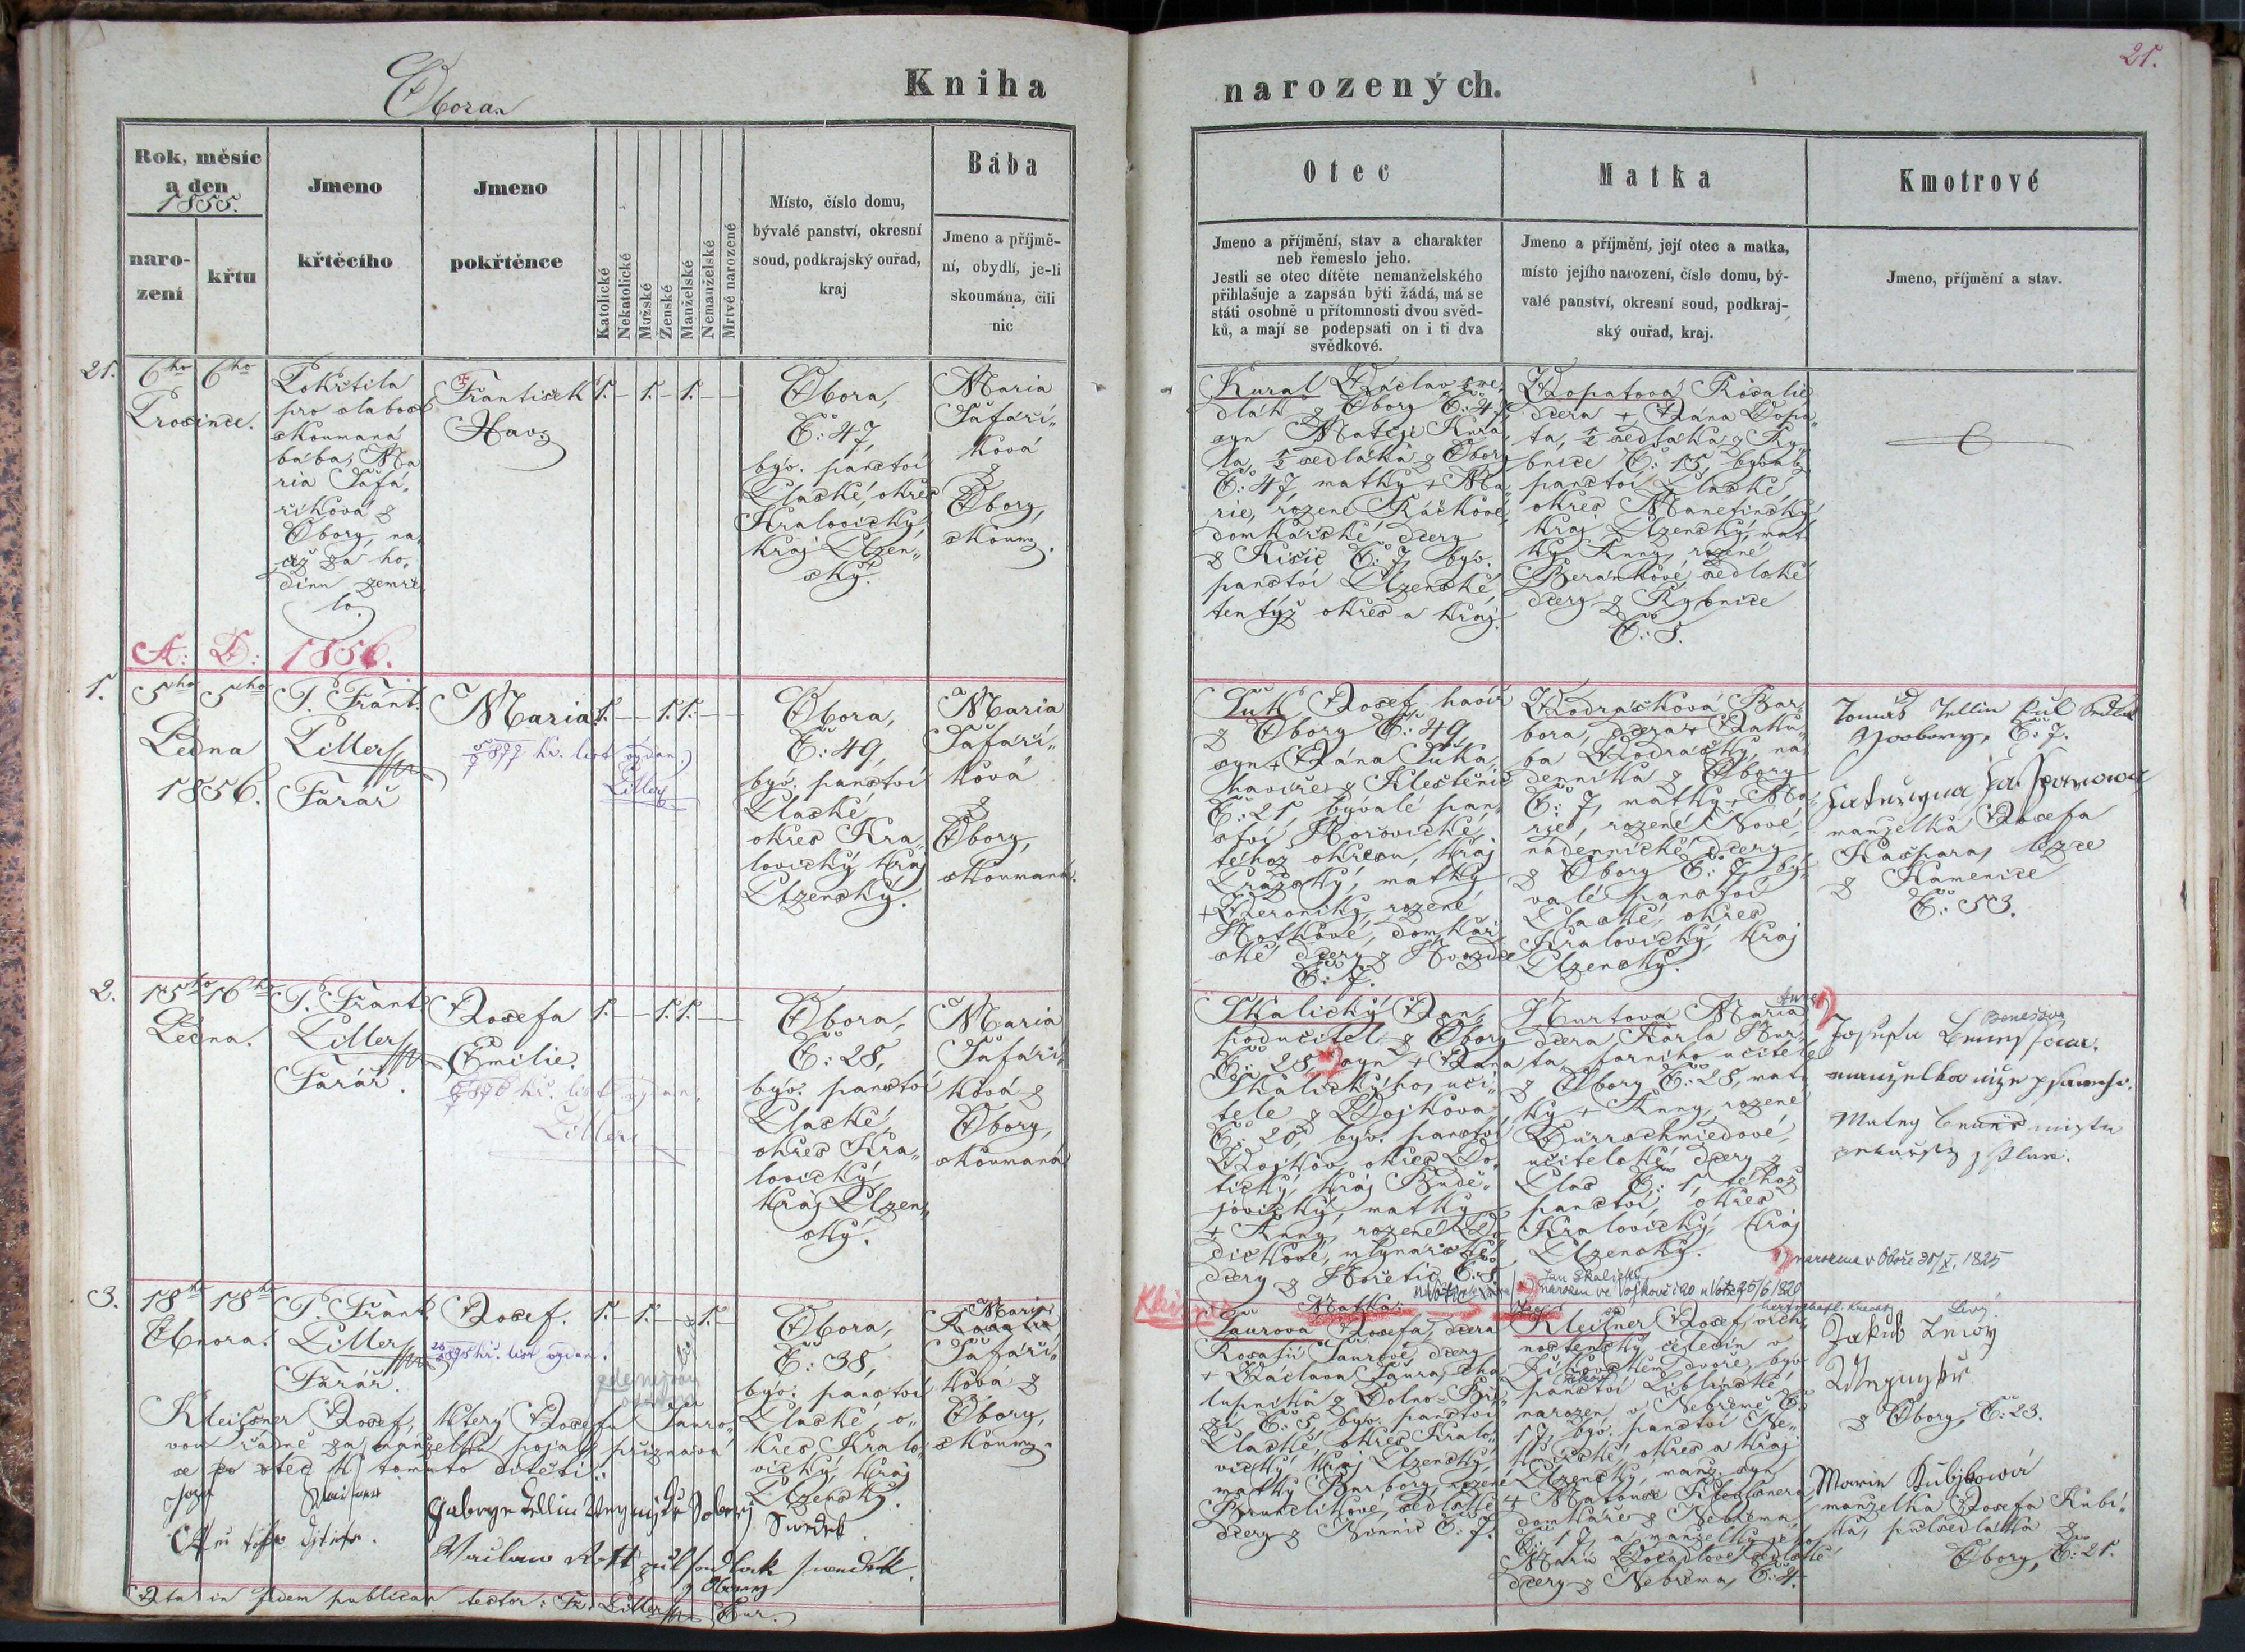 21.
Obora.
Kniha narozených.
Rok, měsíc
a den
1855.
naro-
zení
křtu
Jmeno
křtěcího
Jmeno
pokřtěnce
Katolické
Nekatolické
Mužské
Ženské
Manželské
Nemanželské
Mrtvé narozené
Místo, číslo domu,
bývalé panství, okresní
soud, podkrajský ouřad,
kraj
Bába
Jmeno a příjmě-
ní, obydlí, je-li
skoumána, čili
nic
Otec
Jmeno a příjmění, stav a charakter
neb řemeslo jeho.
Jestli se otec dítěte nemanželského
přiblašuje a zapsán býti žádá, má se
státi osobně u přítomnosti dvou svěd-
ků, a mají se podepsati on i ti dva
svědkové.
Matka
Jmeno a příjmění, její otec a matka,
místo jejího narození, číslo domu, bý-
valé panství, okresní soud, podkraj-
ský ouřad, kraj.
Kmotrové
Jmeno, příjmění a stav.
21.
6ho
Prosince.
6ho
Pokřtila
pro slabost
skoumaná
bába, Ma
ria Šafa,
říková z
Obory, na,
čež za ho,
dinu zemře
lo.
František
Hav.
1. – 1. – 1. – –
Obora,
Č: 47,
býv. panství
Plaské, okres
Kralovický,
kraj Plzen„
ský.
Maria
Šafaří„
ková
z
Obory,
skoum.
Kural Václav, se,
dlák z Obory Č: 47,
syn Matěje Kura,
la, ½ sedláka z Obory
Č: 47, matky + Ma,
rie, rozené Ráčkové,
domkářské dcery
z Kišic Č: 7, býv.
panství Plzenské,
tentýž okres a kraj.
Lopatová Rosalie
dcera + Jána Lopa„
ta, ½ sedláka z Ry„
bnice Č: 15, bývalé
panství Plaské,
okres Manetinský
kraj Plzenský, mat
ky Anny, rozené
Beránkové sedlské
dcery z Rybnice
Č: 8.
A: D: 1856.
1.
5ho
Ledna
1856.
5ho
P. Frant.
Liller
Farář
Maria
1897 kř. list vydan.
Liller
1. – – 1. 1. – –
Obora,
Č: 49,
býv. panství
Plaské
okres Kra„
lovický, kraj
Plzenský.
Maria
Šafaří„
ková
z
Obory,
skoumaná.
Suk Josef, havíř
z Obory Č: 49,
syn + Jána Suka,
havíře z Kleštěnic
Č: 21, bývalé pan„
ství Hořovické,
téhož okresu, kraj
Pražský, matky
+ Veroniky, rozené
Hotkové, domkář,
ské dcery z Hvozdce
Č: 7.
Vodrašková Bar,
bora, dcera + Jaku„
ba Vodrašky, na
denníka z Obory
Č: 7, matky + Ma„
rie, rozené Nové,
nádennické dcery
z Obory Č: 7, bý„
valé panství
Plaské, okres
Kralovický, kraj
Plzenský.
Tomáš Jellin půl Sedlak
Zoobory, Č: 7.
manželka Josefa
Kašpara,
z Kamenice
Č: 53.
2.
15ho
Ledna.
16ho
P. Frant.
Liller
Farář.
Josefa
Emilie.
kř. list vydan.
Liller
1. – – 1. 1. – –
Obora,
Č: 28,
býv. panství
Plaské,
okres Kra„
lovický
kraj Plzen„
ský.
Maria
Šafaří„
ková z
Obory,
skoumaná
Skalický Jan,
podučitel z Obory
Č: 28, syn + Jana
Skalického, uči„
tele z Vojkova
Č: 20, býv. panství
Vojkov, okres Vo„
tický, kraj Budě„
jovický, matky
+ Anny, rozené
mlynářské
dcery z Hořetic Č: 8
Kurtová Maria Anna
dcera Karla Kur„
ta, farního učitele
z Obory Č: 28, mat
ky + Anny, rozené
Dürrschmiedové,
učitelské dcery z
Plas Č: 1, téhož
panství, okres
Kralovický, kraj
Plzenský.
Benešova
manželka níže psaneho.
z Plas.
1) narozena v Oboře 30/X. 1825
Jan Skalický
narozen ve Vojkově č. 20 u Votic 25/6 1820
3.
18ho
Února.
18ho
P. Frant.
Liller
Farář.
Josef.
1895 kř. list vydan.
1. – 1. – – 1. –
Obora,
Č: 38,
býv. panství
Plaské, o„
kres Kralo„
vický, kraj
Plzenský.
Maria
Šafaří„
kova z
Obory,
skoum.
Kleisner
Matka:
Saurova Josefa, dcera
Rosalii Saurové, dcery
+ Václava Saura, cha
lupníka z Dolno-Bří„
zi Č: 5, býv. panství
Plaské, okres Kralo„
vický, kraj Plzenský,
matky Barbory, rozené
Brunclikové, sedlské
dcery z Ninnic Č: 7.
Otec
Kleißner Josef,
nostenský čeledín v
dvoře, býv.
panství Liblínské,
narozen v Nebřemě Č:
17, býv. panství Ne„
kmířské, okres a kraj
Plzenský, manž. syn
+ Matouše Kleissnera
domkáře z Nebřema,
Č: 17, a manželky jeho
Marii
dcery z Nebřema, Č: 4.
Jakub Levy
z Obory, Č: 23.
Marie Kubíkowá
manželka Josefa Kubí„
ka, půlsedláka z
Obory, Č: 21.
Kleißner Josef, který Josefu Sauro„
vou řádně za manželku pojal, přiznává
se za otec k tomuto dítěti:
Svedek
Vaclaw Rott půl sedlak swedek
z Obory
Ita in fidem publicam testor: Fr. Liller Cur.